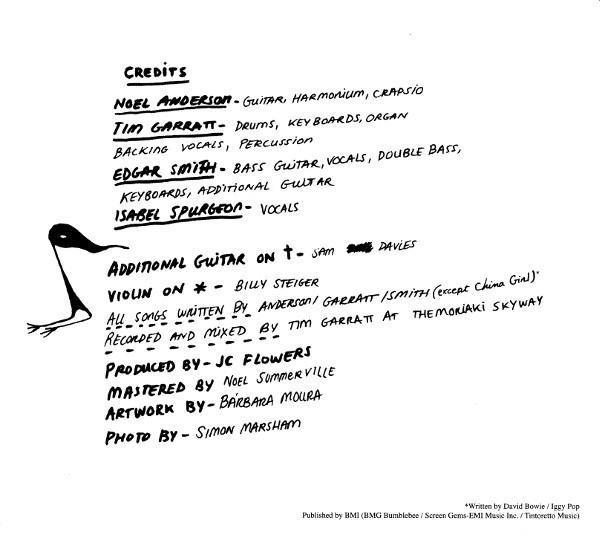 CREDITS
NOEL ANDERSON - GUITAR, HARMONIUM, CRAPSIO
TIM GARRATT - DRUMS, KEYBOARDS, ORGAN
BACKING VOCALS, PERCUSSION
EDGAR SMITH - BASS GUITAR, VOCALS, DOUBLE BASS,
KEYBOARDS, ADDITIONAL GUITAR
ISABEL SPURGEON - VOCALS
ADDITIONAL GUITAR ON † - SAM DAVIES
VIOLIN ON * - BILLY STEIGER
ALL SONGS WRITTEN BY ANDERSON/GARRATT/SMITH (except China Girl)*
RECORDED AND MIXED BY TIM GARRATT AT THEMORIAKI SKYWAY
PRODUCED BY - JC FLOWERS
MASTERED BY NOEL SUMMERVILLE
ARTWORK BY - BÁRBARA MOURA
PHOTO BY - SIMON MARSHAM
*Written by David Bowie / Iggy Pop
Published by BMI (BMG Bumblebee / Screen Gems-EMI Music Inc. / Tintoretto Music)